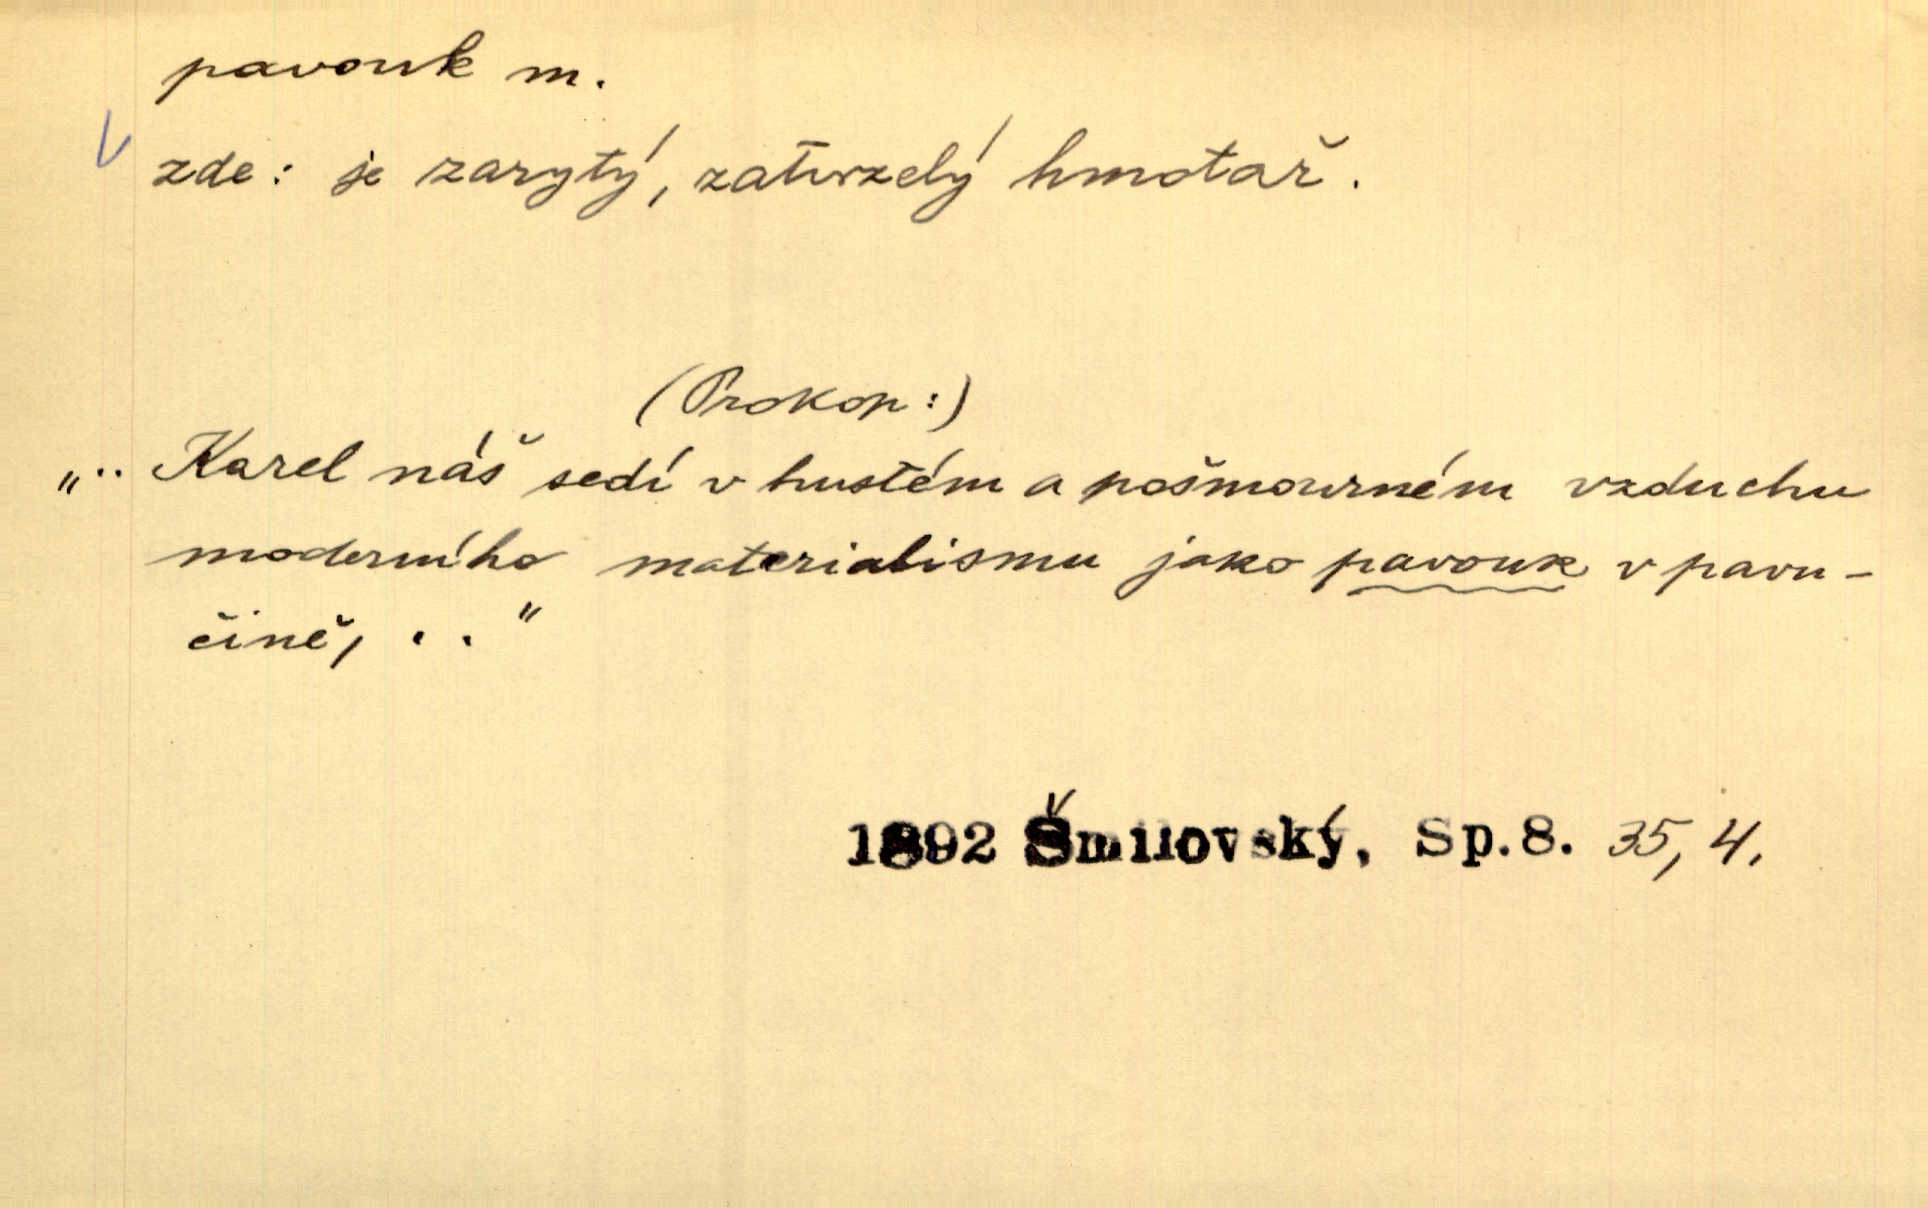 pavouk m.
zde: je zarytý, zatvrzelý hmotař.
(Prokop:)
„.. Karel náš sedí v hustém a pošmourném vzduchu
moderního materialismu jako pavouk v pavu-
čině, . . "
1892 Šmilovský, Sp.8. 35, 4.